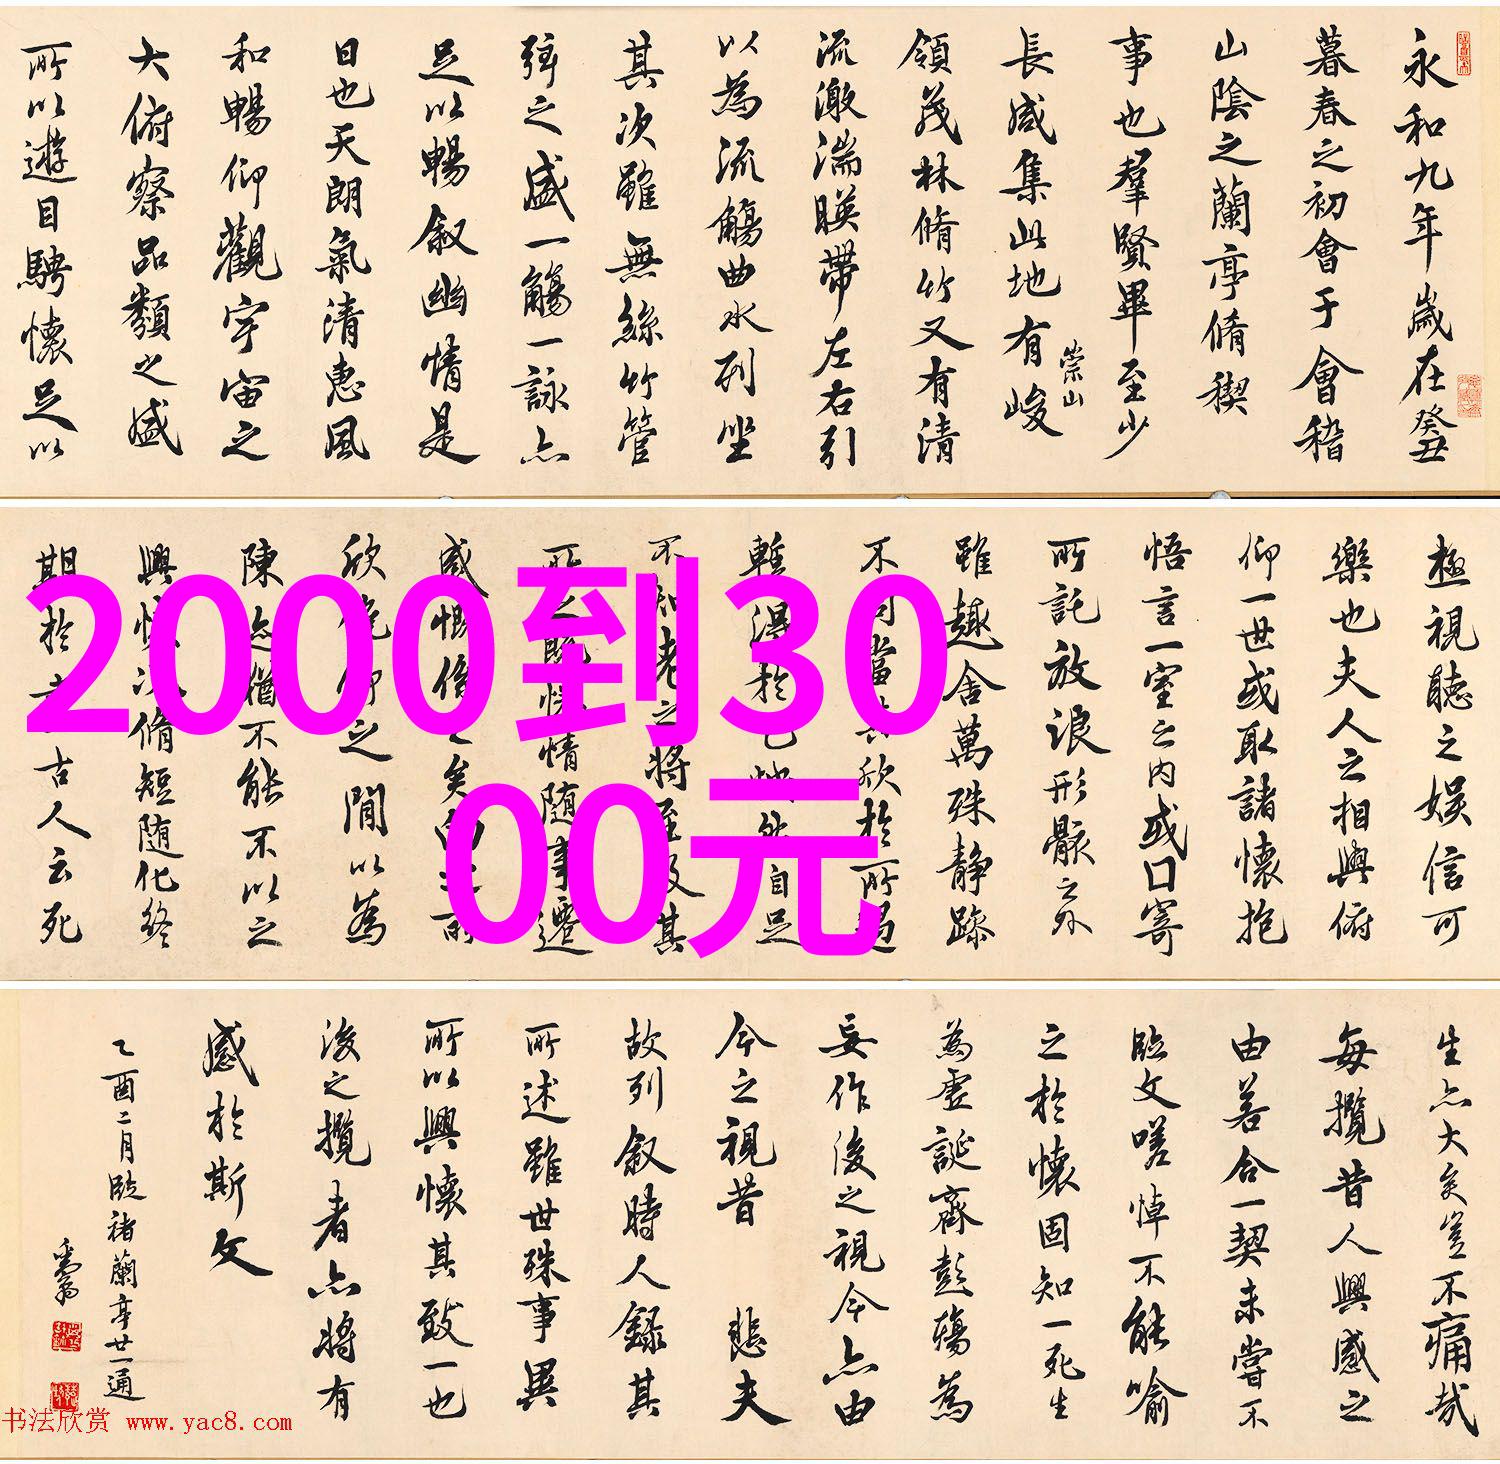 永和九年歲在癸丑
暮春之初會于會稽
山陰之蘭亭脩稧
事也羣賢畢至少
長咸集此地有峻
崇山
領茂林脩竹又有清
流激湍暎帶左右引
以為流觴曲水列坐
其次雖無絲竹管
弦之盛一觴一詠亦
足以暢叙幽情是
日也天朗氣清惠風
和暢仰觀宇宙之
大俯察品類之盛
所以遊目騁懷足以
極視聽之娛信可
樂也夫人之相與俯
仰一世或取諸懷抱
悟言一室之内或口寄
所託放浪形骸之外
雖趣舍萬殊静躁
不同當其欣於所遇
暫得於己快然自足
不知老之將至及其
所之既惓情随事遷
感慨係之矣向之所
欣俛仰之閒以為
陳亦猶不能不以之
興懷況脩短随化終
期於古人云死
2000到30
00元
生亦大矣豈不痛哉
每攬昔人興感之
由若合一契未嘗不
臨文嗟悼不能喻
之於懷固知一死生
為虛誕齊彭殤為
妄作後之視今亦由
今之視昔 悲夫
故列叙時人錄其
所述雖世殊事異
所以興懷其致一也
後之攬者亦將有
感於斯文
乙酉二月臨褚蘭亭廿一通
书法欣赏 www.yac8.com